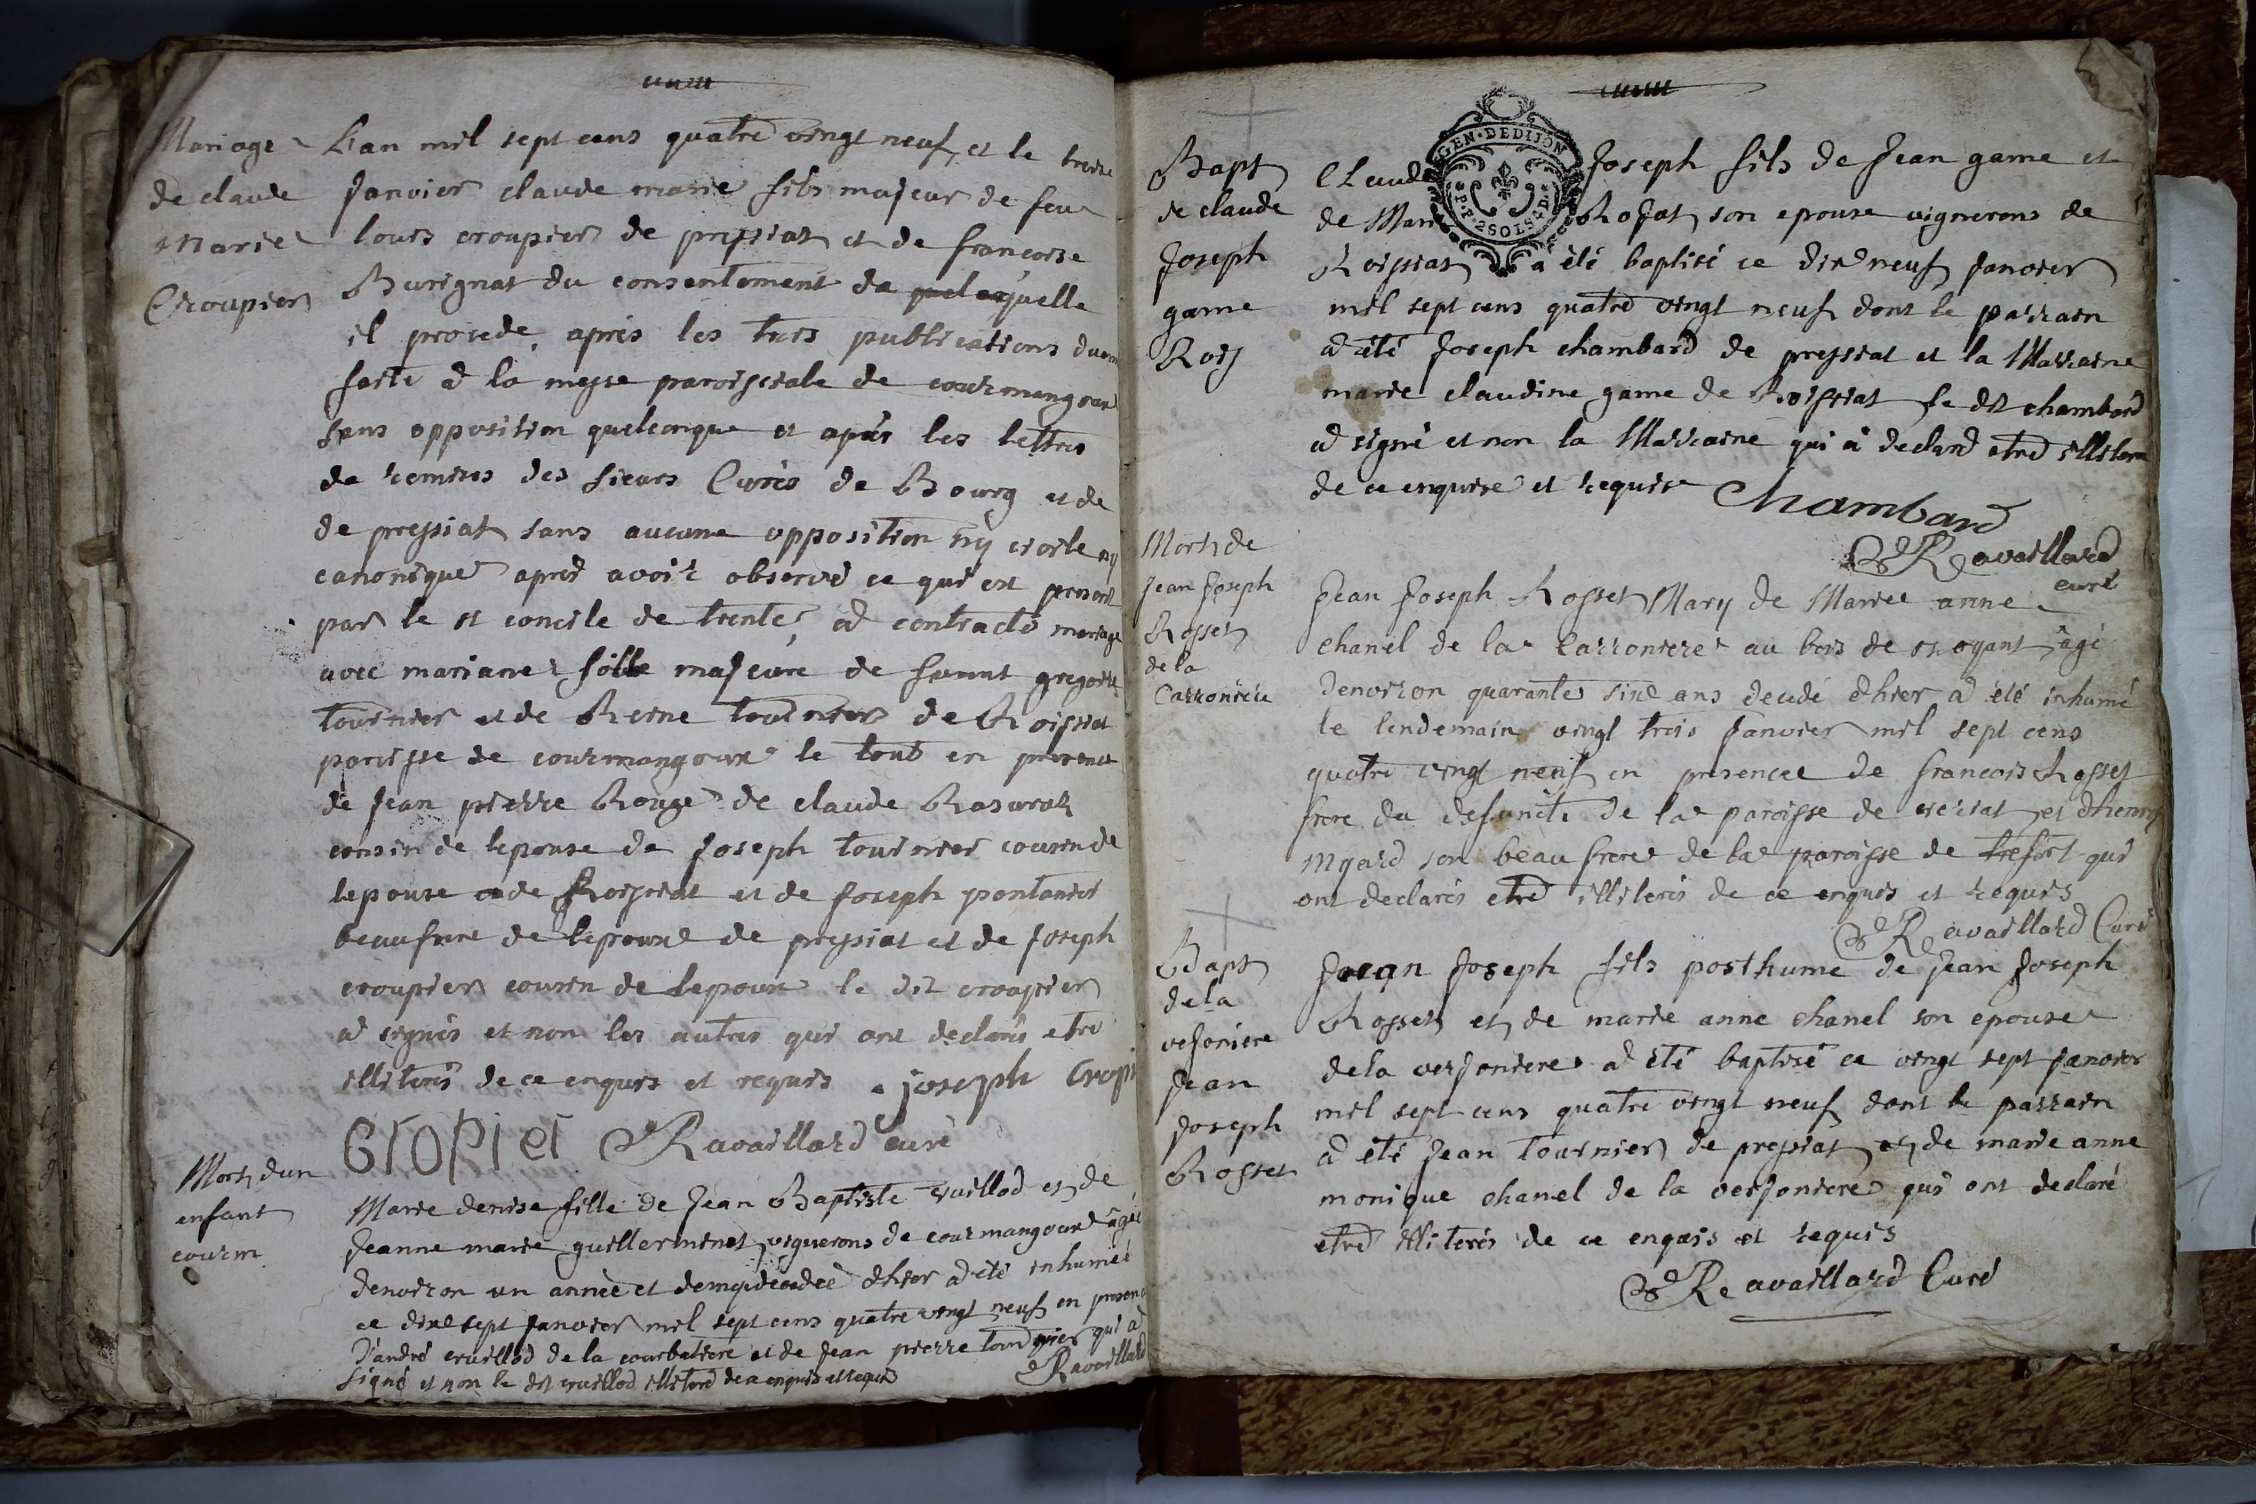 Mariage
de claude
Marie
Croupier
L'an mil sept cens quatre vingt neuf et le treize
Janvier claude marie fils majeur de feu
louis croupier de pressiat et de francoise
Burignat du consentement de laquelle
il procede, après les trois publications duem
faite a la messe paroissiale de courmangoux
sans opposition quelconque et après les lettres
de remises des sieurs Curés de Bourg et de
de pressiat sans aucune opposition ny civile ny
canonique après avoir observé ce qui est prescrit
par le st concile de trente, a contracté mariage
avec mariane fille majeure de gregoire
tournier et de Reine tournier de Roissiat
paroisse de courmangoux le tout en presence
de Jean pierre Rouge de claude
cousin de lepouse de Joseph tournier cousin de
lepouse de Roissiat et de Joseph pontanier
beaufrere de lepoux de pressiat et de Joseph
croupier cousin de lepoux le dit croupier
a signés et non les autres qui ont declarés etre
illiterés de ce enquis et requis . joseph Cropi
Cropier Ravaillard curé
Mort dun
enfant
courm.
Marie denise fille de Jean Baptiste vuillod et de
Jeanne marie guillerminet vignerons de courmangoux agée
denviron un année et demy decedée dhier a été inhumée
ce dixsept Janvier mil sept cens quatre vingt neuf en presence
D'andré vuillod de la courbatiere et de Jean pierre tournier qui a
signé et non le dit vuillod illiteré de ce enquis et requis Ravaillard
Bapt
de claude
Joseph
game
Rois
GEN·DEDIJON
P.P. 2SOLS 4D.
Claude Joseph fils de Jean game et
de Marie Rojat son epouse vignerons de
Roissiat a été baptisé ce dix neuf Janvier
mil sept cens quatre vingt neuf dont le parrain
a été Joseph chambard de pressiat et la Marraine
marie claudine game de Roissiat le dit chambard
a signé et non la Marraine qui a declaré etre illiteré
de ce enquise et requise Chambard
Ravaillard
curé
Mort de
Jean Joseph
Rosset
de la
Carroniere
Jean Joseph Rosset Mary de Marie anne
chanel de la Carroniere au bois de agé
denviron quarante six ans decedé dhier a été inhumé
le lendemain vingt trois Janvier mil sept cens
quatre vingt neuf en presence de francois Rosset
frere du defunct de la paroisse de veriat et dhenry
son beau frere de la paroisse de trefort qui
ont declarés etre illiterés de ce enquis et requis
Ravaillard Curé
Bapt
de la
versoniere
Jean
Joseph
Rosset
Jean Joseph fils posthume de Jean Joseph
Rosset et de marie anne chanel son epouse
de la verjoniere a été baptisé ce vingt sept Janvier
mil sept cens quatre vingt neuf dont le parrain
a été Jean tournier de pressiat et de marie anne
monique chanel de la verjoniere qui ont declaré
etre illiterés de ce enquis et requis
Ravaillard Curé